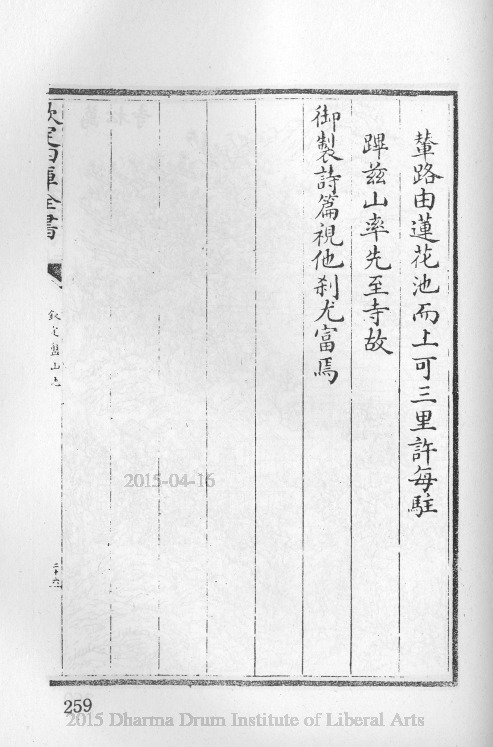 輦路由蓮花池而上可三里許每駐
蹕兹山率先至寺故
御製詩篇視他刹尤富焉
欽定四庫全書
欽定盤山志
2015-04-16
259
2015 Dharma Drum Institute of Liberal Arts